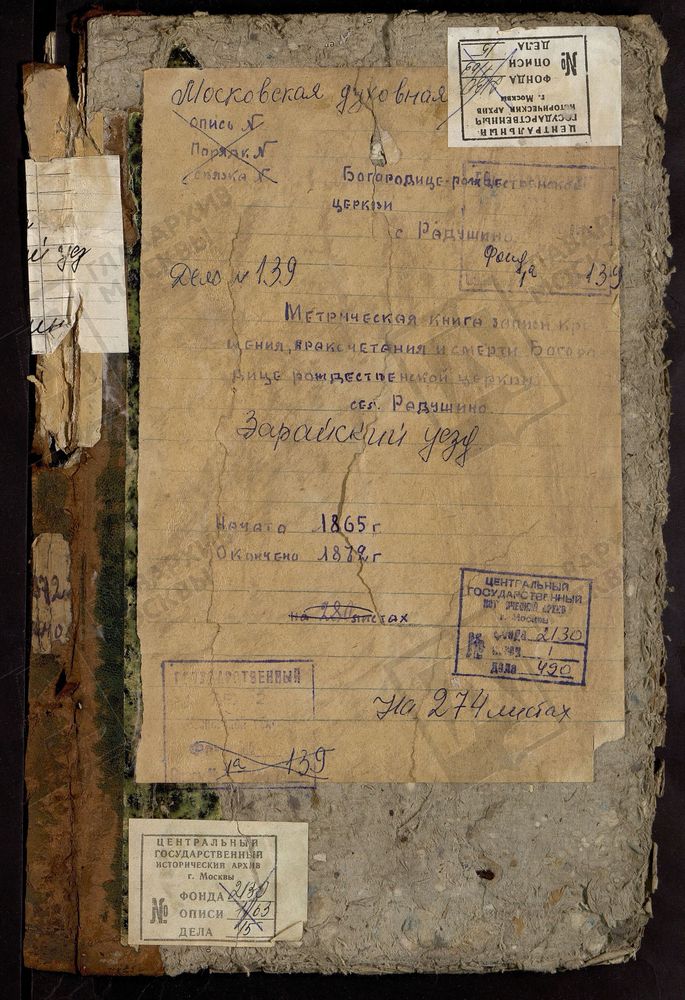 Московская духовная
опись N
Порядк. N
связка N
Богородице-рождественской
церкви
с Радушино
Фонд
1а 139
Дело № 139
Метрическая книга записи кре
щения, бракочетания и смерти Богоро
дице рождественской церкви
сел. Радушино.
Зарайский уезд
Начато 1865 г
Окончено 1872 г
на 280 листах
На 274 листах
ЦЕНТРАЛЬНЫЙ
ГОСУДАРСТВЕННЫЙ
ИСТОРИЧЕСКИЙ АРХИВ
г. Москвы
№ фонда 2130
опись 1
дела 420
ГОСУДАРСТВЕННЫЙ
1а 139
ЦЕНТРАЛЬНЫЙ
ГОСУДАРСТВЕННЫЙ
ИСТОРИЧЕСКИЙ АРХИВ
г. Москвы
№
ФОНДА 2130
ОПИСИ
ДЕЛА 15
ЦЕНТРАЛЬНЫЙ
ГОСУДАРСТВЕННЫЙ
ИСТОРИЧЕСКИЙ АРХИВ
г. Москвы
№
ФОНДА
ОПИСИ
ДЕЛА 15
ГЛАВАРХИВ
МОСКВЫ